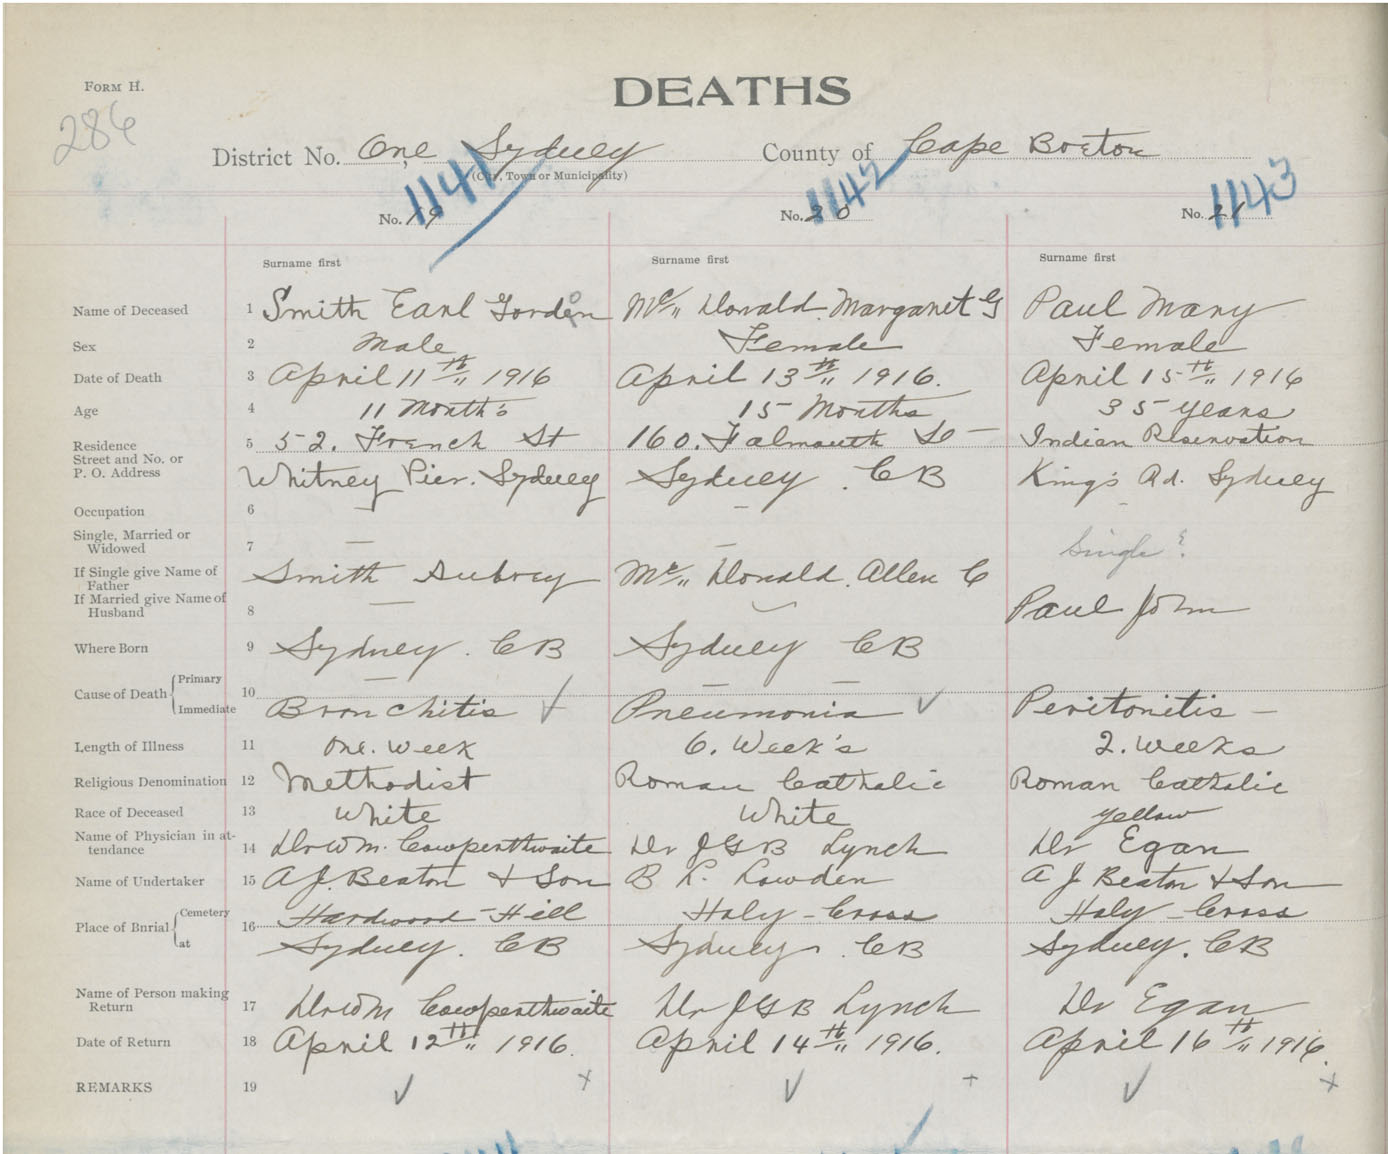 FORM H.
DEATHS
286
District No. One, Sydney County of Cape Breton
(City, Town or Municipality)
1141 1142 1143
No. 19 No. 20 No. 21
Surname first Surname first Surname first
Name of Deceased 1 Smith Earl Gordon Mc,, Donald. Margaret G Paul Mary
Sex 2 Male Female Female
Date of Death 3 April 11th,, 1916 April 13th,, 1916. April 15th,, 1916
Age 4 11 Month's 15 Months 35 years
Residence 5 52. French St 160. Falmouth St — Indian Reservation
Street and No. or
P. O. Address Whitney Pier. Sydney Sydney. CB King's Rd. Sydney
Occupation 6 — — -
Single, Married or
Widowed 7 — — Single ?
If Single give Name of
Father Smith Aubrey Mc,, Donald. Allen C
If Married give Name of
Husband 8 — — Paul John
Where Born 9 Sydney. CB Sydney CB
Cause of Death Primary 10 — — —
Immediate Bronchitis ✓ Pneumonia ✓ Peritonitis —
Length of Illness 11 One. Week 6. Week's 2. Weeks
Religious Denomination 12 Methodist Roman Catholic Roman Catholic
Race of Deceased 13 White White yellow
Name of Physician in at-
tendance 14 Dr Wm. Cowperthwaite Dr J G B Lynch Dr Egan
Name of Undertaker 15 A J. Beaton & Son B L. Lowden A J Beaton & Son
Place of Burial Cemetery 16 Hardwood - Hill Holy - Cross Holy - Cross
at Sydney. CB Sydney. CB Sydney. CB
Name of Person making
Return 17 Dr Wm Cowperthwaite Dr J G B Lynch Dr Egan
Date of Return 18 April 12th,, 1916. April 14th,, 1916. April 16th,, 1916.
REMARKS 19 ✓ + ✓ + ✓ +